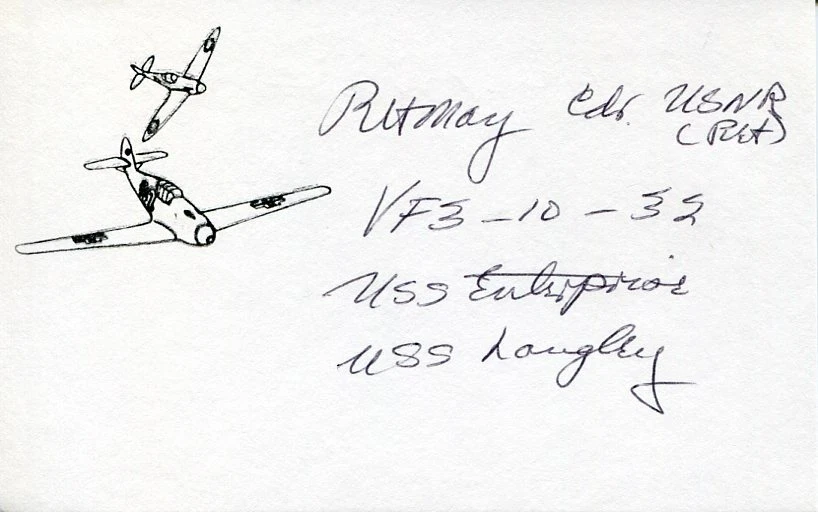 RH May Cdr. USNR
(Ret)
VF3-10-32
USS Enterprise
USS Langley